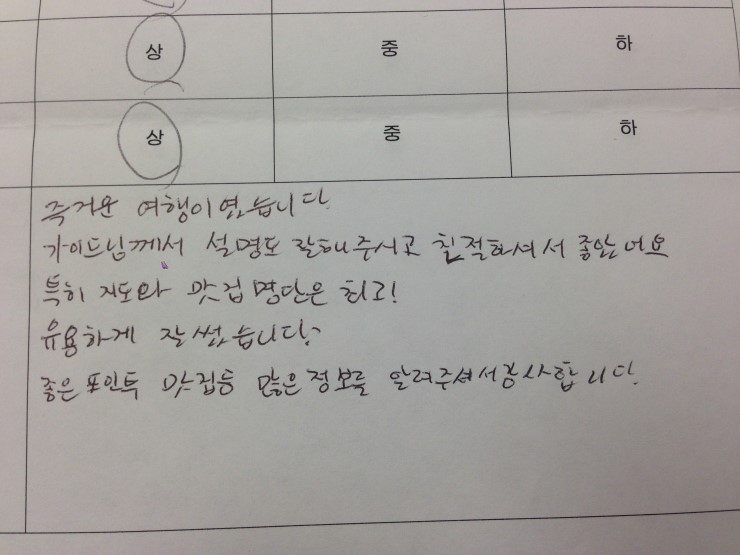 상 중 하
상 중 하
즉거운 여행이였습니다.
가이드님께서 설명도 잘해주시고 친절하셔서 좋았어요
특히 지도와 맛집명단은 최고!
유용하게 잘썼습니다.
좋은 포인트 맛집등 많은정보를 알려주셔서감사합니다.